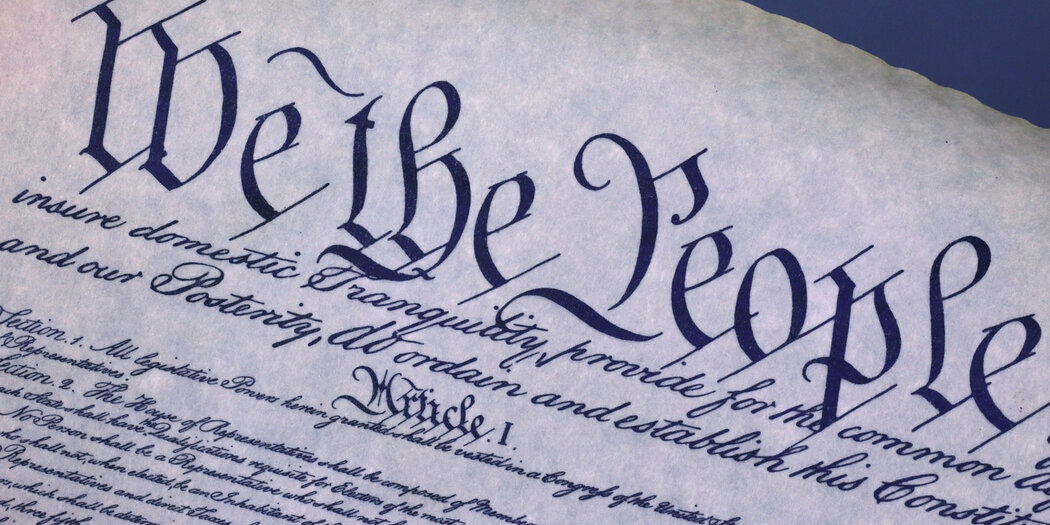 We the People
insure domestic Tranquility, provide for the common
and our Posterity, do ordain and establish this Constit
Article. I.
Section. 1. All legislative Powers herein granted shall be vested in a Congress of the United
Representatives.
Section. 2. The House of Representatives shall be composed of Membe
State shall have the Qualifications requisite for Electors of the most
No Person shall be a Representative who shall not
shall not, when elected, be an Inhabitant of
Representatives and direct Taxes
which shall be determ
three fifth